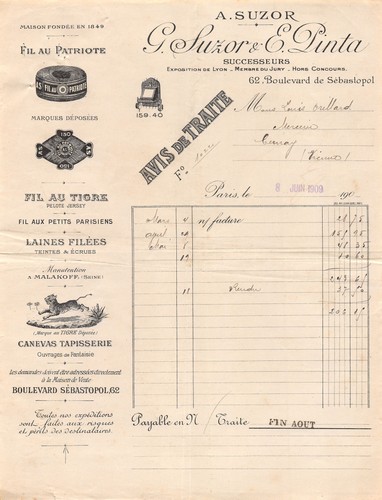 MAISON FONDÉE EN 1849
FIL AU PATRIOTE
45 FIL AU PATRIOTE
MARQUES DÉPOSÉES
150
150
FIL AU TIGRE
PELOTE JERSEY
FIL AUX PETITS PARISIENS
LAINES FILÉES
TEINTES & ÉCRUES
Manutention
A MALAKOFF (SEINE)
(Marque au TIGRE Déposée)
CANEVAS TAPISSERIE
Ouvrages de Fantaisie
Les demandes doivent être adressées directement
à la Maison de Vente
BOULEVARD SÉBASTOPOL, 62
Toutes nos expéditions
sont faites aux risques
et périls des destinataires.
A. SUZOR
G. Suzor & E. Pinta
SUCCESSEURS
EXPOSITION DE LYON - MEMBRE DU JURY - HORS CONCOURS.
62, Boulevard de Sébastopol
159.40
AVIS DE TRAITE
Fo
Mme Louis
Mercerie
(Vienne)
Paris, le 8 JUIN 1909 190
Mars 4 n/ facture 28 75
8
12
243
18
Payable en N/ Traite FIN AOUT